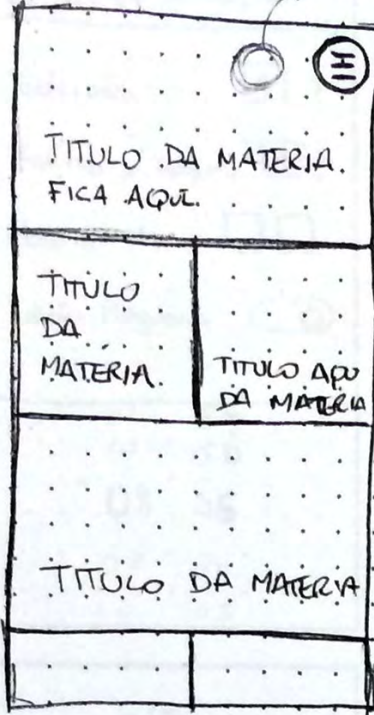 TITULO DA MATERIA.
FICA AQUI.
TITULO
DA
MATERIA.
TITULO AQU
DA MATERIA
TITULO DA MATERIA